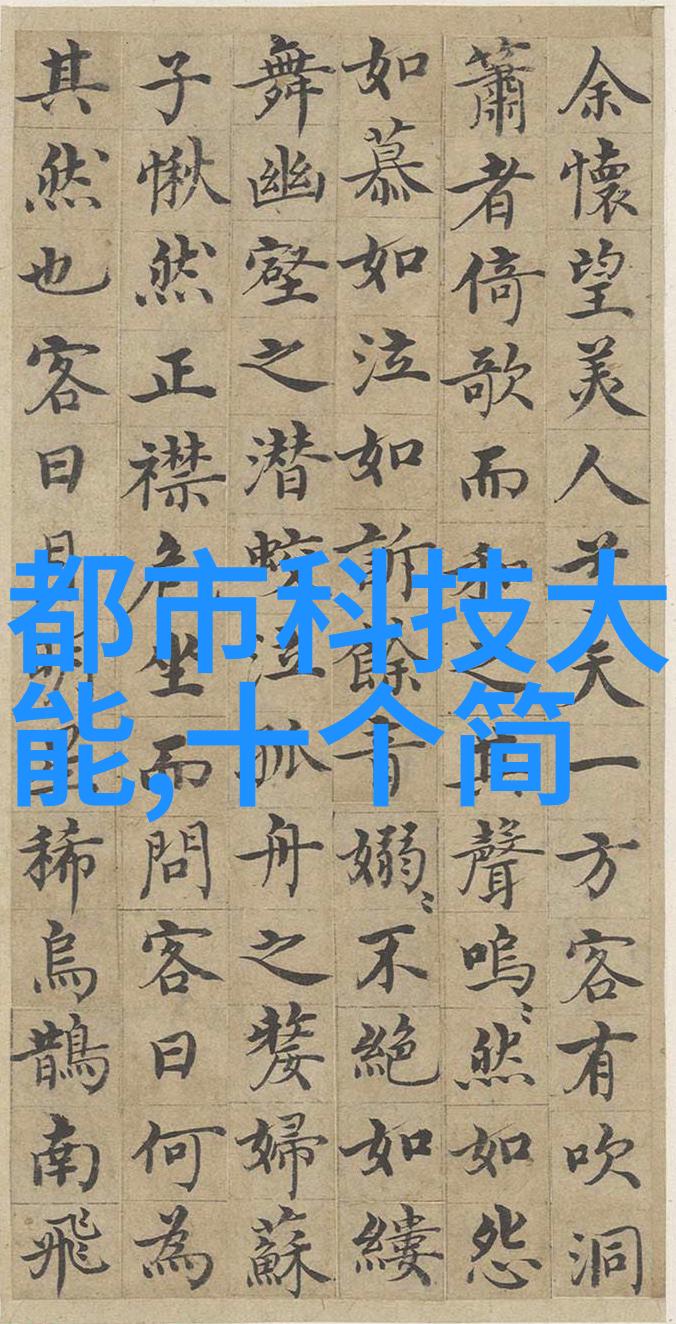 余懷望美人兮天一方客有吹洞
簫者倚歌而和之其聲嗚〻然如怨
如慕如泣如訴餘音嫋〻不絕如縷
舞幽壑之潜蛟泣孤舟之嫠婦蘇
子愀然正襟危坐而問客曰何為
其然也客曰月明星稀烏鵲南飛
都市科技大
能,十个简